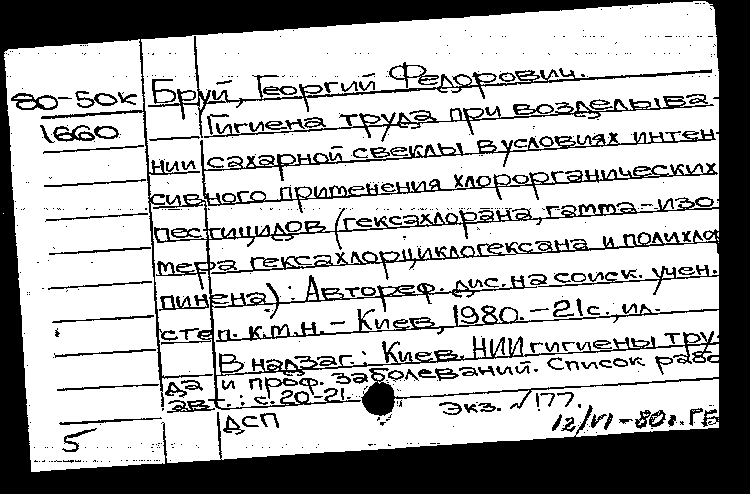 80-50к Бруй, Георгий Федорович.
1660 Гигиена труда при возделыва-
нии сахарной свеклы в условиях интен-
сивного применения хлорорганических
пестицидов (гексахлорана, гамма-изо-
мера гексахлорциклогексана и полихло
пинена): Автореф. дис. на соиск. учен.
степ. к.м.н. - Киев, 1980. - 21с., ил.
В надзаг.: Киев. НИИ гигиены тру-
да и проф. заболеваний. Список рабо
авт.: с. 20-21.
Экз. №177.
ДСП
12/VI-80г. ГБ
5